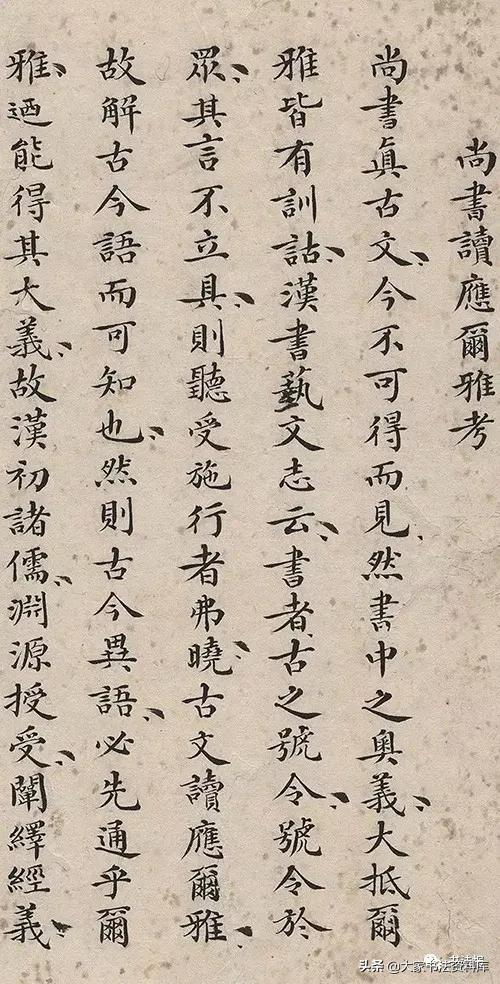 尚書讀應爾雅考
尚書眞古文、今不可得而見、然書中之奧義、大抵爾
雅皆有訓詁、漢書藝文志云、書者古之號令、號令於
眾、其言不立具、則聽受施行者弗曉、古文讀應爾雅、
故解古今語而可知也、然則古今異語、必先通乎爾
雅、迺能得其大義、故漢初諸儒、淵源授受、闡繹經義、
头条 @大家书法资料库